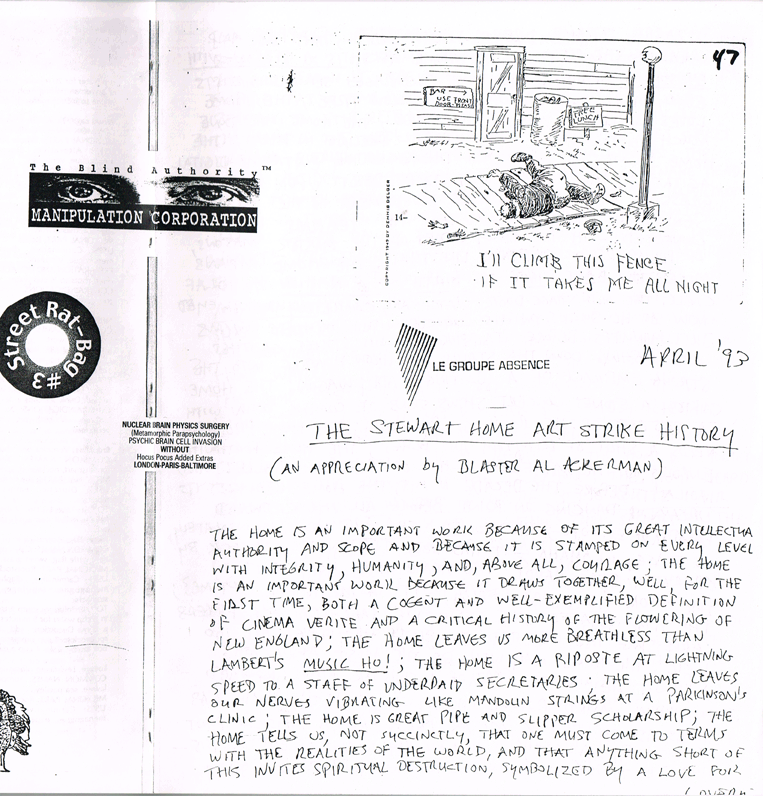 47
BAR →
USE FRONT
DOOR PLEASE
FREE
LUNCH
14—
I'll CLIMB THIS FENCE
IF IT TAKES ME ALL NIGHT
The Blind Authority™
MANIPULATION CORPORATION
Street Rat-Bag #3
LE GROUPE ABSENCE
APRIL '93
NUCLEAR BRAIN PHYSICS SURGERY
(Metamorphic Parapsychology)
PSYCHIC BRAIN CELL INVASION
WITHOUT
Hocus Pocus Added Extras
LONDON-PARIS-BALTIMORE
THE STEWART HOME ART STRIKE HISTORY
(AN APPRECIATION by BLASTER AL ACKERMAN)
THE HOME IS AN IMPORTANT WORK BECAUSE OF ITS GREAT INTELLECTUA
AUTHORITY AND SCOPE AND BECAUSE IT IS STAMPED ON EVERY LEVEL
WITH INTEGRITY, HUMANITY, AND, ABOVE ALL, COURAGE; THE HOME
IS AN IMPORTANT WORK BECAUSE IT DRAWS TOGETHER, WELL, FOR THE
FIRST TIME, BOTH A COGENT AND WELL-EXEMPLIFIED DEFINITION
OF CINEMA VERITE AND A CRITICAL HISTORY OF THE FLOWERING OF
NEW ENGLAND; THE HOME LEAVES US MORE BREATHLESS THAN
LAMBERT'S MUSIC HO!; THE HOME IS A RIPOSTE AT LIGHTNING
SPEED TO A STAFF OF UNDERPAID SECRETARIES. THE HOME LEAVES
OUR NERVES VIBRATING LIKE MANDOLIN STRINGS AT A PARKINSON'S
CLINIC; THE HOME IS GREAT PIPE AND SLIPPER SCHOLARSHIP; THE
HOME TELLS US, NOT SUCCINCTLY, THAT ONE MUST COME TO TERMS
WITH THE REALITIES OF THE WORLD, AND THAT ANYTHING SHORT OF
THIS INVITES SPIRITUAL DESTRUCTION, SYMBOLIZED BY A LOVE FOR